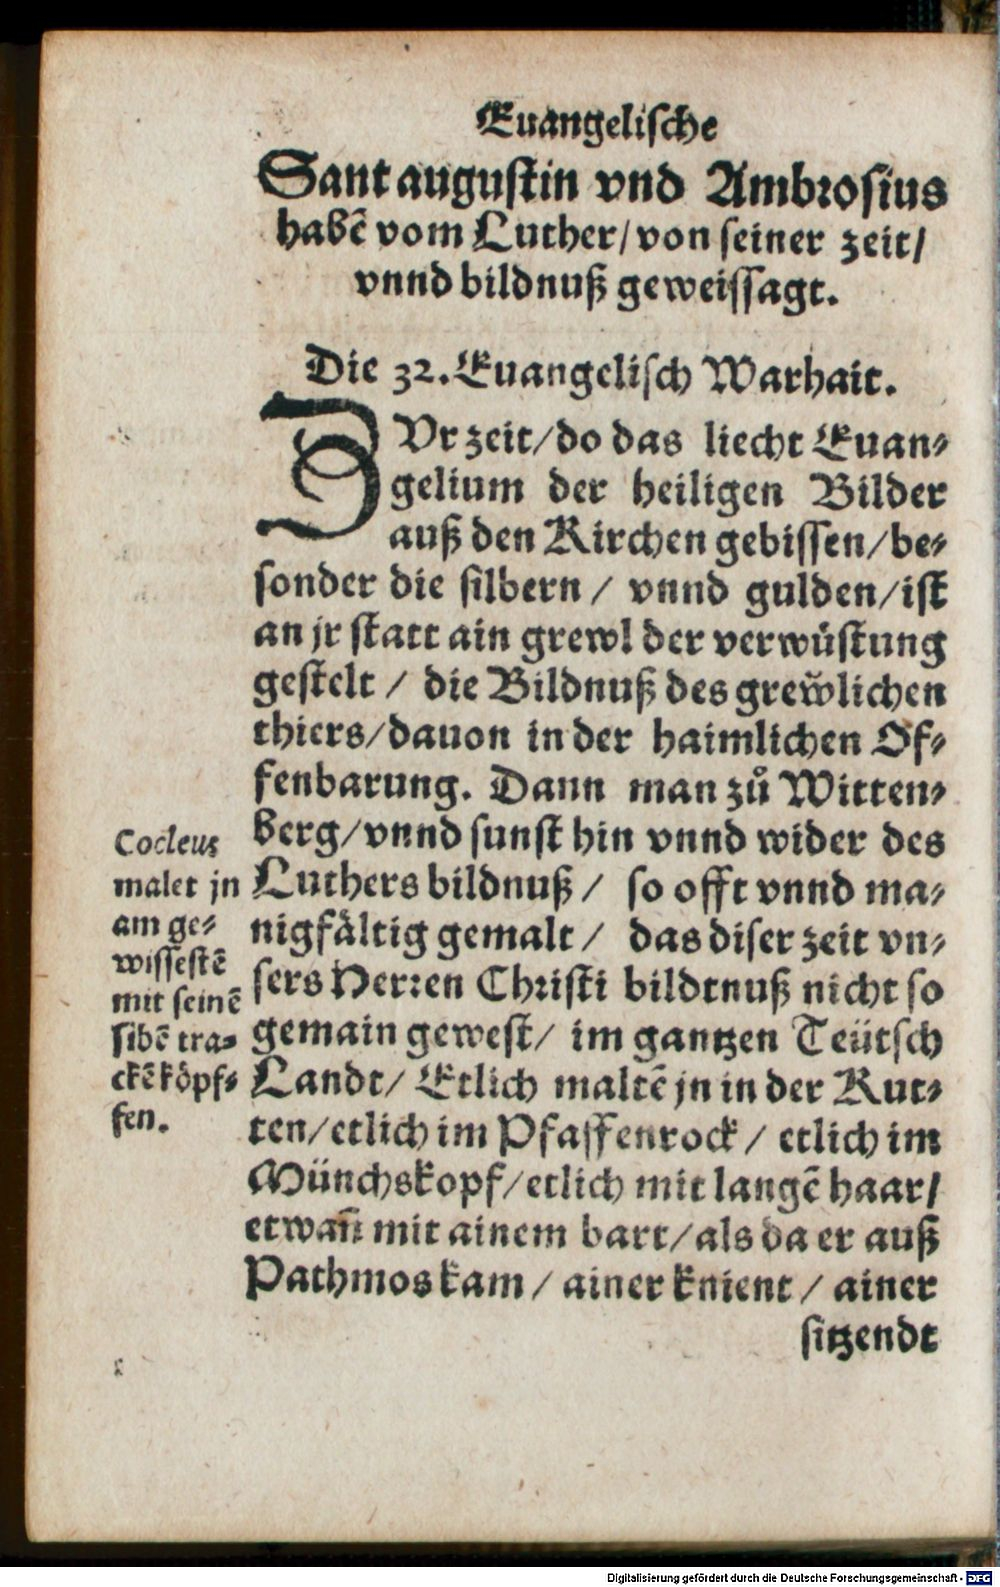 Euangelische
Sant augustin vnd Ambrosius
habē vom Luther/von seiner zeit/
vnnd bildnuß geweissagt.
Die 32. Euangelisch Warhait.
ZVr zeit/do das liecht Euan⸗
gelium der heiligen Bilder
auß den Kirchen gebissen/be⸗
sonder die silbern / vnnd gulden/ist
an jr statt ain grewl der verwůstung
gestelt / die Bildnuß des grew̌lichen
thiers/dauon in der haimlichen Of⸗
fenbarung. Dann man zů Witten⸗
berg/vnnd sunst hin vnnd wider des
Luthers bildnuß / so offt vnnd ma⸗
nigfåltig gemalt / das diser zeit vn⸗
sers Herren Christi bildtnuß nicht so
gemain gewest/ im gantzen Teütsch
Landt/ Etlich maltē jn in der Kut⸗
ten/etlich im Pfaffenrock / etlich im
Münchskopf/etlich mit langē haar/
etwan̄ mit ainem bart/als da er auß
Pathmos kam / ainer knient / ainer
sitzendt
Cocleus
malet jn
am ge⸗
wissestē
mit seinē
sibē tra⸗
ckē kŏpf⸗
fen.
Digitalisierung gefördert durch die Deutsche Forschungsgemeinschaft - DFG